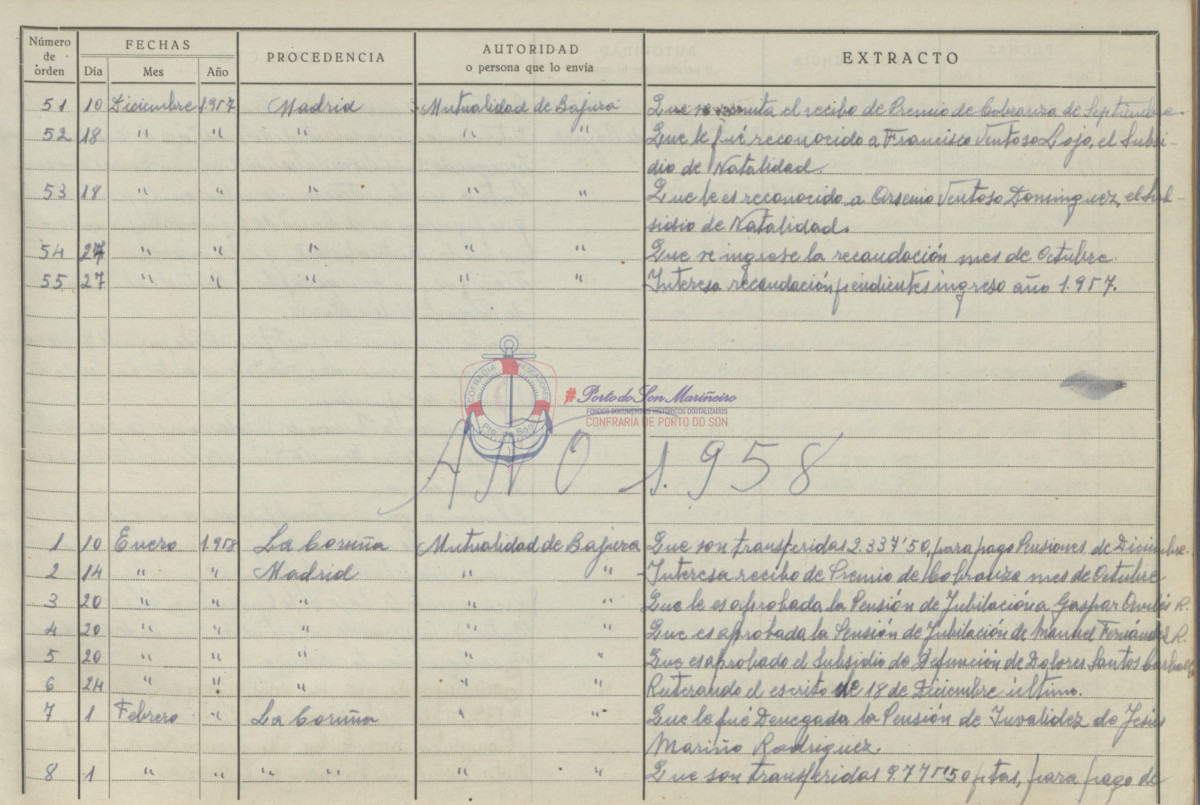 Número de orden FECHAS PROCEDENCIA AUTORIDAD o persona que lo envía EXTRACTO
Día Mes Año
51 10 Diciembre 1.957 Madrid Mutualidad de Bajura Que se remita el recibo de Premio de Cobranza de Septiembre.
52 18 " " " " " Que le fué reconocido a Francisco Ventoso Lojo, el Subsi-
dio de Natalidad.
53 18 " " " " " Que le es reconocido a Arsenio Ventoso Dominguez, el Sub-
sidio de Natalidad.
54 27 " " " " " Que se ingrese la recaudación mes de Octubre.
55 27 " " " " " Interesa recaudación pendientes ingreso año 1.957.
COFRADIA PESCADORES
Pto. Son
#PortodoSonMariñeiro
FONDOS DOCUMENTAIS HISTÓRICOS DIXITALIZADOS
CONFRARÍA DE PORTO DO SON
AÑO 1.958
1 10 Enero 1.958 La Coruña Mutualidad de Bajura Que son transferidas 2.337'50, para pago Pensiones de Diciembre.
2 14 " " Madrid " " Interesa recibo de Premio de Cobranza mes de Octubre
3 20 " " " " " Que le es aprobada la Pensión de Jubilación a Gaspar Avilés R.
4 20 " " " " " Que es aprobada la Pensión de Jubilación de Manuel Fernández R.
5 20 " " " " " Que es aprobado el Subsidio de Defunción de Dolores Santos
6 24 " " " " " Reiterando el escrito de 18 de Diciembre último.
7 1 Febrero " La Coruña " " Que le fué Denegada la Pensión de Invalidez de Jesús
Mariño Rodriguez.
8 1 " " " " " " Que son transferidas ptas, para pago de